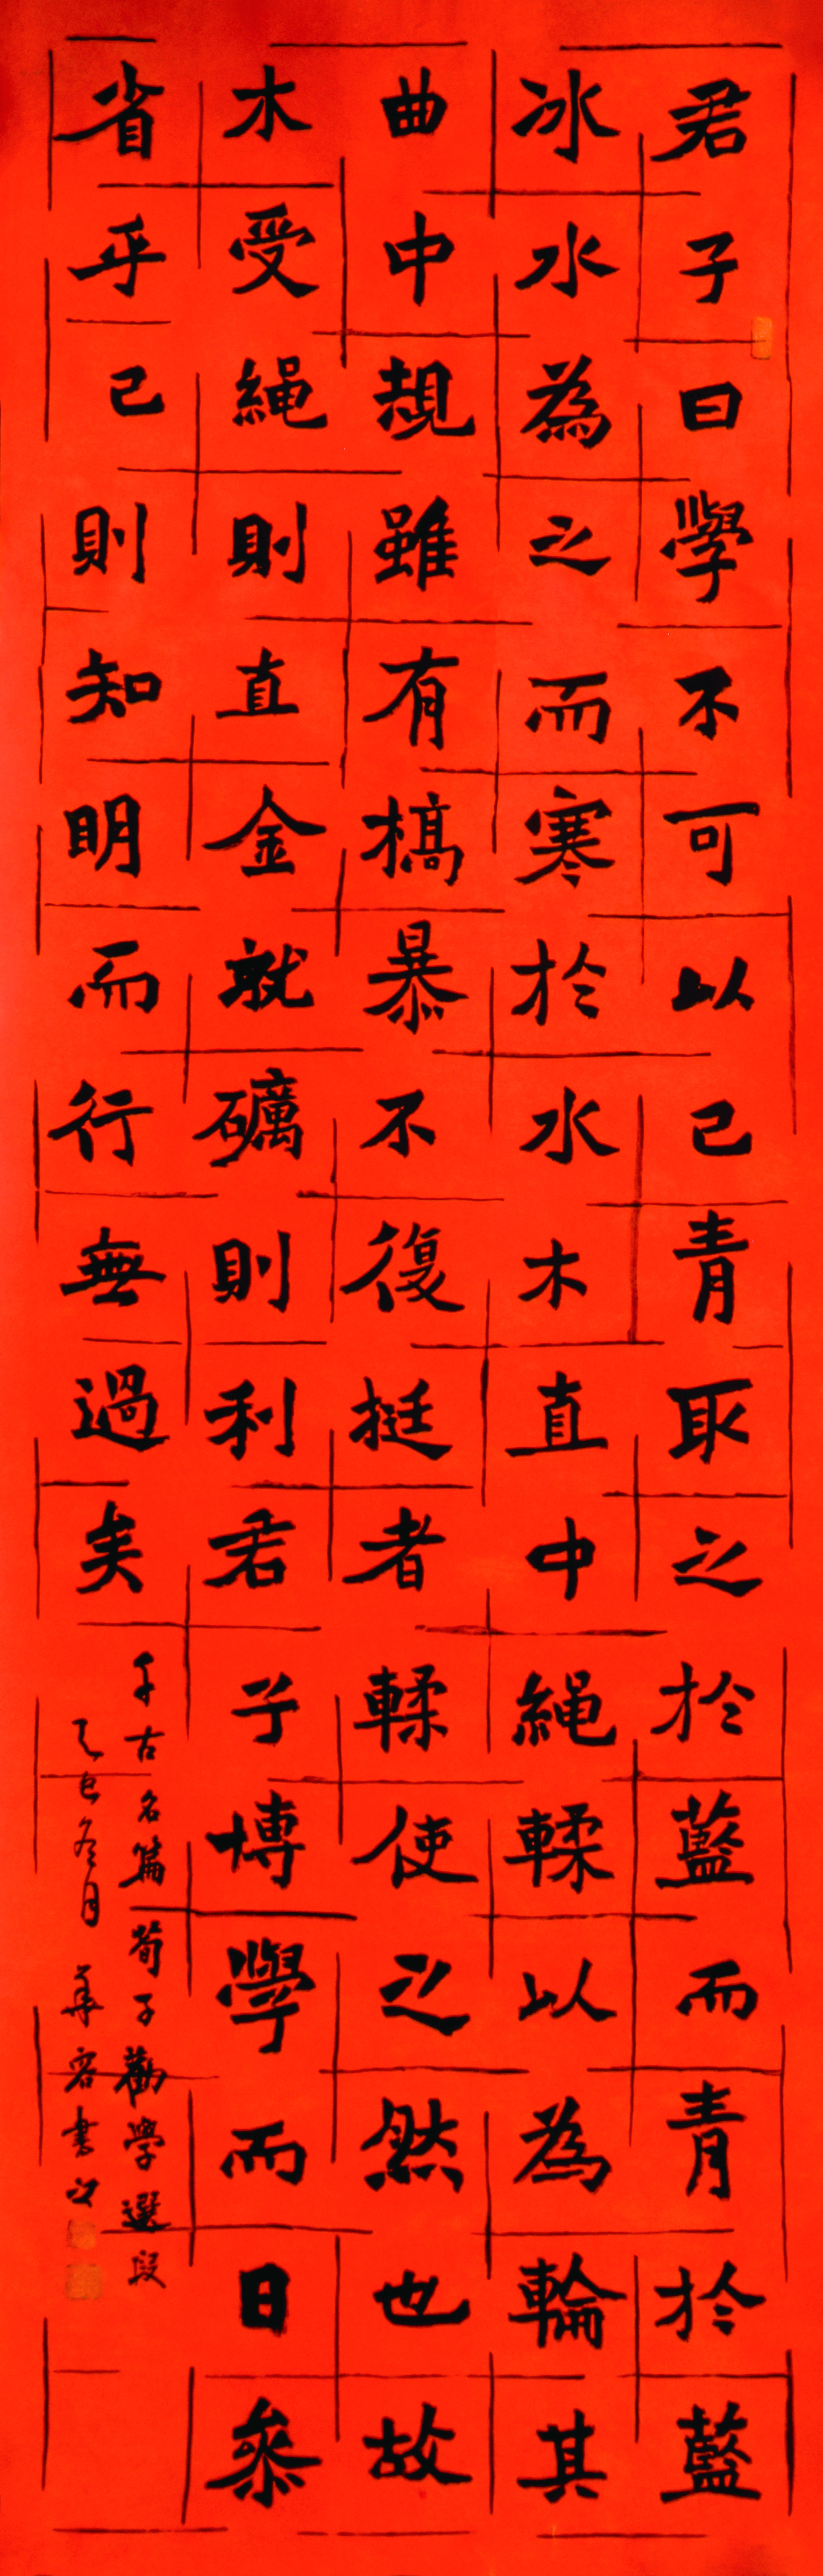 君子曰學不可以已青取之於藍而青於藍
冰水為之而寒於水木直中繩輮以為輪其
曲中規雖有槁暴不復挺者輮使之然也故
木受繩則直金就礪則利君子博學而日參
省乎己則知明而行無過矣
千古名篇荀子勸學選段
乙巳冬月華容書